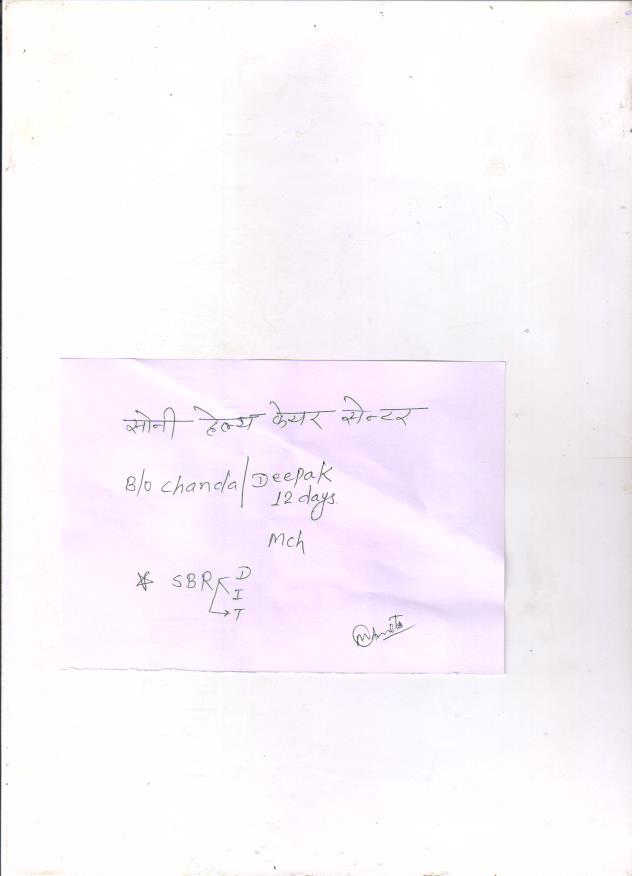 सोनी हेल्थ केयर सेन्टर
B/o Chanda/Deepak
12 days.
Mch
* SBR D
I
→ T